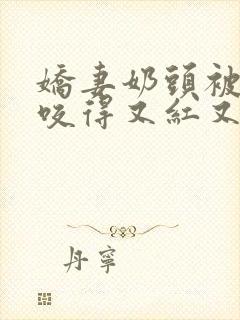 嬌妻奶頭被
咬得又紅又
丹寧